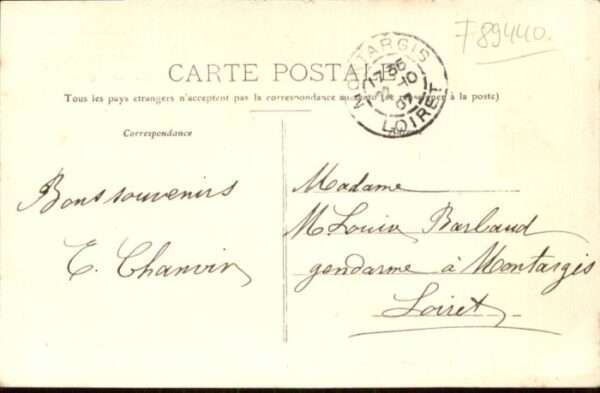 F 89440.
CARTE POSTALE
MONTARGIS
17 35
22 - 10
07
LOIRET
Tous les pays étrangers n'acceptent pas la correspondance au (se à la poste)
Correspondance
Bons souvenirs
E. Chanvin
Madame
M Louis Barbaud
gendarme à Montargis
Loiret